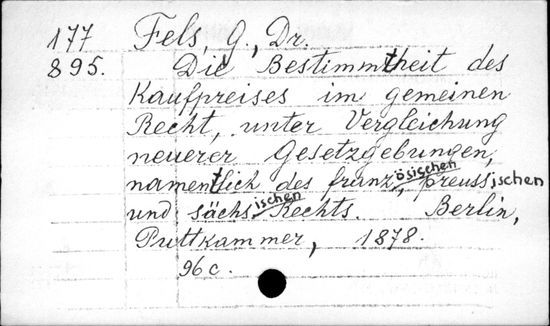 177 Fels, G., Dr.
895. Die Bestimmtheit des
Kaufpreises im gemeinen
Recht, unter Vergleichung
neuerer Gesetzgebungen,
namentlich des französischen, preussischen
und sächsischen Rechts. Berlin,
Puttkammer, 1878.
96 c.